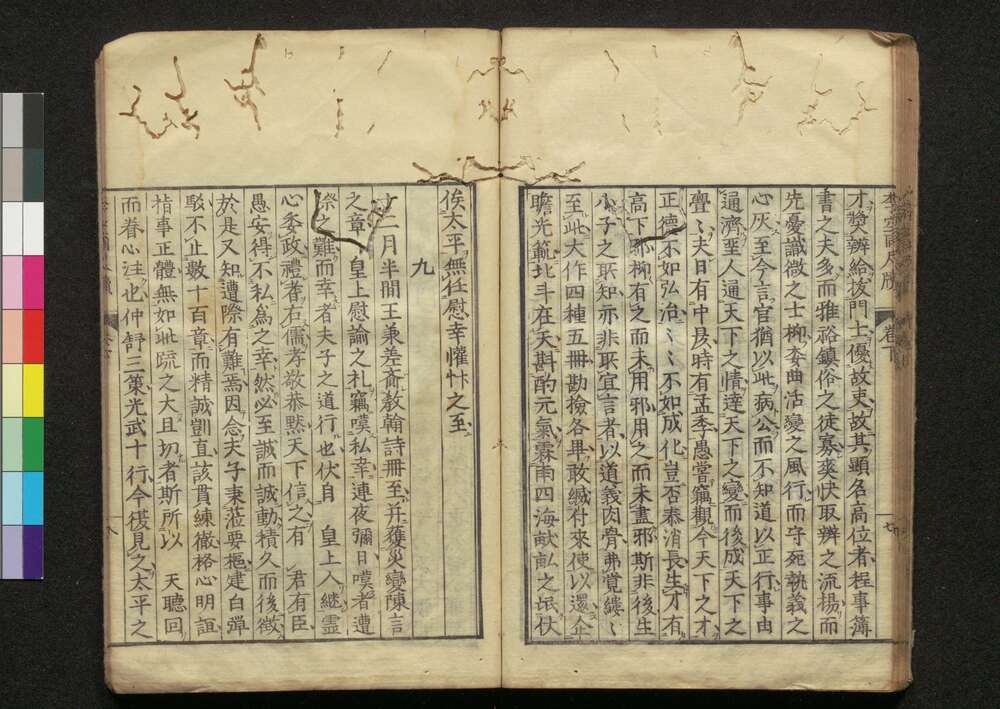 才奬辨給拔門士優故吏故其顯名高位者程事簿
書之夫多而雅裕鎮俗之徒寡爽快取辨之流揚而
先憂識微之士抑委曲活變之風行而守死執義之
心灰至今言官猶以此病公而不知道以正行事由
通濟至人通天下之情達天下之變而後成天下之
亹〻夫日有中昃時有孟季愚嘗竊觀今天下之才
正德不如弘治〻〻不如成化豈否泰消長生才有
高下耶抑有之而未用邪用之而未盡邪斯非後生
小子之所知亦非所宜言者以道義肉骨弗覺縷〻
至此大作四種五冊勘撿各畢敢緘付來使以還企
瞻光範北斗在天斟酌元氣霖雨四海畎畝之氓伏
俟太平無任慰幸懽忭之至
九
十二月半間王兼差齎教翰詩冊至并獲災變陳言
之章 皇上慰諭之札竊嘆私幸連夜彌日嘆者遭
際之難而幸者夫子之道行也伏自 皇上入継靈
心委政禮耆右儒孝敬恭黙天下信之有 君有臣
愚安得不私為之幸然必至誠而誠動積久而後徴
於是又知遭際有難焉因念夫子秉蒞要樞建白彈
駁不止數十百章而精誠剴直該貫練徹格心明誼
指事正體無如此疏之大且切者斯所以 天聽回
而眷心注也仲舒三策光武十行今復見之太平之